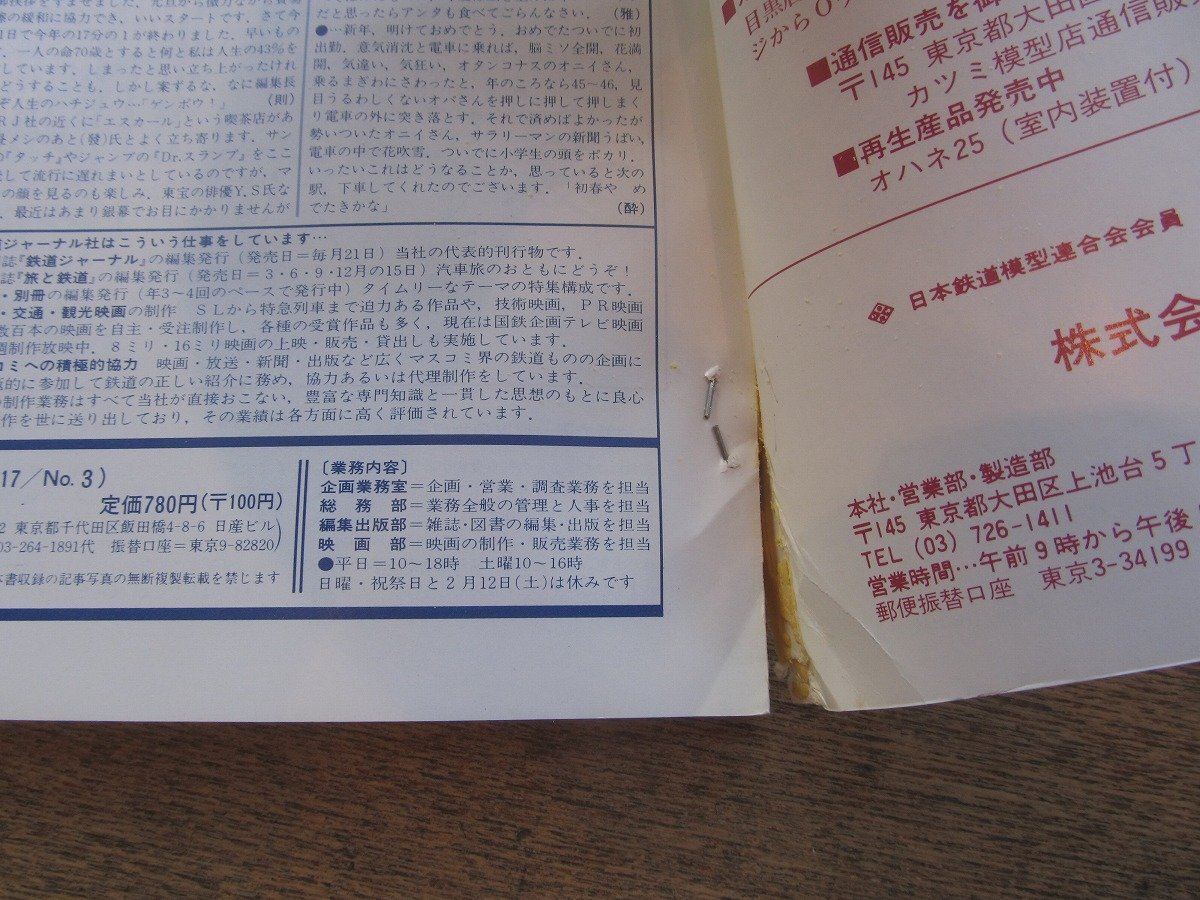 の緩和に協力でき、いいスタートです．さて今
1日で今年の17分の1が終わりました．早いもの
．一人の命70歳とすると何と私は人生の43％を
しています．しまったと思い立ち上がったけれ
どうすることも．しかし案ずるな，なに編集長
ぞ人生のハチジュウ…「ゲンポウ！」 （則）
ＲＪ社の近くに「エスカール」という喫茶店があ
昼メシのあと(發)氏とよく立ち寄ります．サン
の『タッチ』やジャンプの『Dr.スランプ』をここ
して流行に遅れまいとしているのですが，マ
の顔を見るのも楽しみ．東宝の俳優Y,S氏な
．最近はあまり銀幕でお目にかかりませんが
だと思ったらアンタも食べてごらんなさい．（雅）
●…新年，明けておめでとう．おめでたついでに初
出勤．意気消沈と電車に乗れば，脳ミソ全開，花満
開，気違い，気狂い，オタンコナスのオニイさん，
乗るまぎわにさわったと，年のころなら45～46，見
目うるわしくないオバさんを押しに押して押しまく
り電車の外に突き落とす．それで済めばよかったが
勢いついたオニイさん，サラリーマンの新聞うばい，
電車の中で花吹雪．ついでに小学生の頭をポカリ．
いったいこれはどうなることか，思っていると次の
駅，下車してくれたのでございます．「初春や め
でたきかな」 （酔）
道ジャーナル社はこういう仕事をしています…
誌『鉄道ジャーナル』の編集発行（発売日＝毎月21日）当社の代表的刊行物です．
誌『旅と鉄道』の編集発行（発売日＝3・6・9・12月の15日）汽車旅のおともにどうぞ！
・別冊の編集発行（年3～4回のペースで発行中）タイムリーなテーマの特集構成です．
・交通・観光映画の制作 ＳＬから特急列車まで迫力ある作品や，技術映画，ＰＲ映画
数百本の映画を自主・受注制作し，各種の受賞作品も多く，現在は国鉄企画テレビ映画
週制作放映中．８ミリ・16ミリ映画の上映・販売・貸出しも実施しています．
コミへの積極的協力 映画・放送・新聞・出版など広くマスコミ界の鉄道ものの企画に
極的に参加して鉄道の正しい紹介に務め，協力あるいは代理制作をしています．
の制作業務はすべて当社が直接おこない，豊富な専門知識と一貫した思想のもとに良心
作を世に送り出しており，その業績は各方面に高く評価されています．
17／No.3）
定価780円(〒100円)
2 東京都千代田区飯田橋4-8-6 日産ビル
03-264-1891代 振替口座＝東京9-82820
本書収録の記事写真の無断複製転載を禁じます
〔業務内容〕
企画業務室＝企画・営業・調査業務を担当
総務部＝業務全般の管理と人事を担当
編集出版部＝雑誌・図書の編集・出版を担当
映画部＝映画の制作・販売業務を担当
●平日＝10～18時 土曜10～16時
日曜・祝祭日と２月12日(土)は休みです
ジから
■通信販売を御
〒145 東京都大田区
カツミ模型店通信販
■再生産品発売中
オハネ25（室内装置付）
日本鉄道模型連合会会員
株式会
本社・営業部・製造部
〒145 東京都大田区上池台5丁
TEL (03) 726-1411
営業時間…午前9時から午後
郵便振替口座 東京3-34199